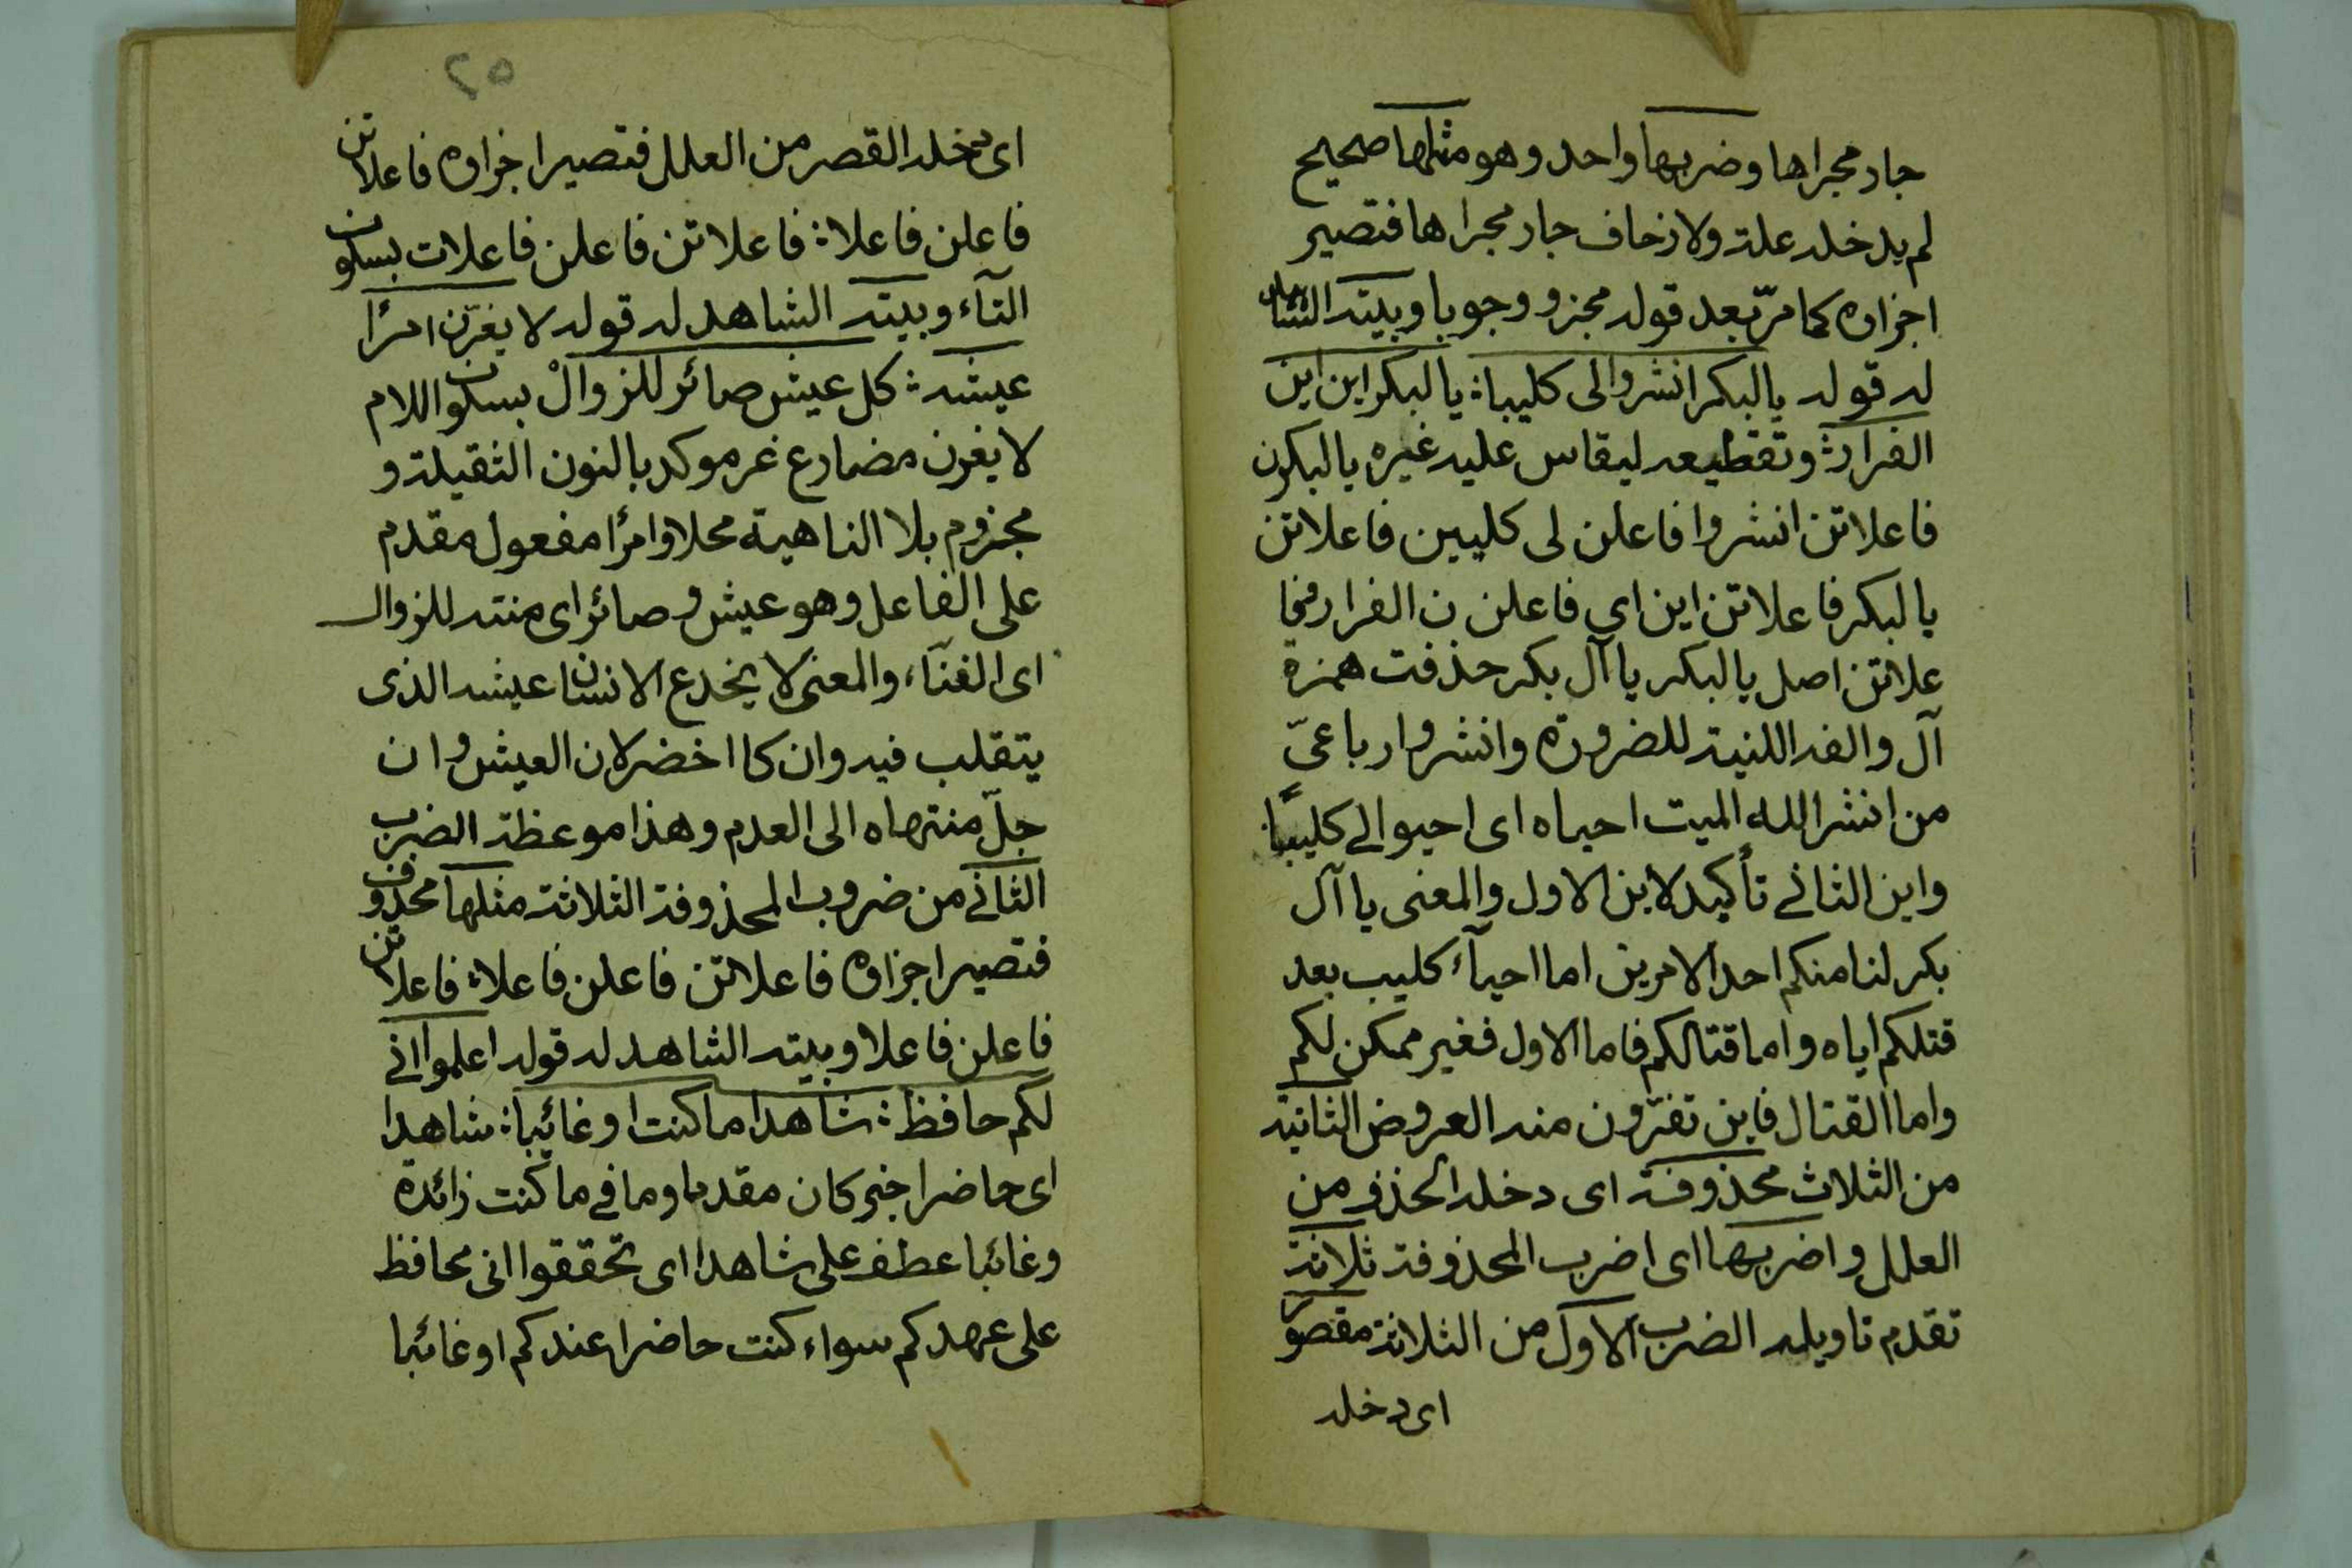 جار مجراها وضربها واحد وهو مثلها صحيح
لم يدخله علة ولا زحاف جار مجراها فتصير
اجزاؤه كما مرّ بعد قوله مجزو وجوبا وبيته الشاهد
له قوله يا لبكر انشروا لى كليبا ؛ يا لبكر اين اين
الفرار ؛ وتقطيعه ليقاس عليه غيره يا لبكرن
فاعلاتن انشروا فاعلن لى كليبن فاعلاتن
يا لبكر فاعلاتن اين اى فاعلن ن الفرار فا
علاتن اصل يا لبكر يا آل بكر حذفت همزة
آل والفه اللنية للضرورة وانشروا رباعىّ
من انشر الله الميت احياه اى احيوا لے كليبًا
واين الثانے تأكيد لاين الاول والمعنى يا آل
بكر لنا منكم احد الامرين اما احيآء كليب بعد
قتلكم اياه واما قتالكم فاما الاول فغير ممكن لكم
واما القتال فاين تفرّون منه العروض الثانية
من الثلاث محذوفة اى دخله الحذف من
العلل واضربها اى اضرب المحذوفة ثلاثة
تقدم تاويله الضرب الاول من الثلاثة مقصور
اى دخله
٢٥
اى دخله القصر من العلل فتصير اجزاؤه فاعلاتن
فاعلن فاعلا ؛ فاعلاتن فاعلن فاعلات بسكون
التآء وبيته الشاهد له قوله لا يغرّن امرًا
عيشه ؛ كل عيش صائر للزوالْ بسكون اللام
لا يغرن مضارع غر موكد بالنون الثقيلة و
مجزوم بلا الناهية محلا وامرًا مفعول مقدم
على الفاعل وهو عيش وصائر اى منته للزوال
اى الفنآء والمعنى لا يخدع الانسان عيشه الذى
يتقلب فيه وان كا اخضر لان العيش وان
جلّ منتهاه الى العدم وهذا موعظة الضرب
الثانے من ضروب المحذوفة الثلاثة مثلها محذوف
فتصير اجزاؤه فاعلاتن فاعلن فاعلا ؛ فاعلاتن
فاعلن فاعلا وبيته الشاهد له قوله اعلموا انے
لكم حافظ ؛ شاهدا ما كنت او غائبا ؛ شاهدا
اى حاضرا خبر كان مقدما وما فے ما كنت زائدة
وغائبا عطف على شاهدا اى تحققوا انى محافظ
على عهدكم سواء كنت حاضرا عندكم او غائبا